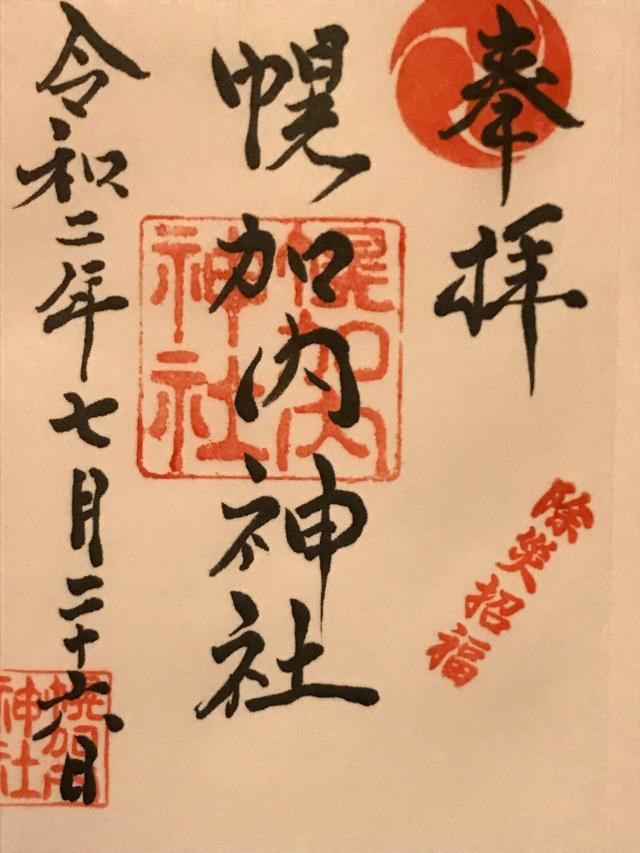 奉拝
除災招福
幌加内神社
幌加内
神社
令和二年七月二十六日
幌加内
神社